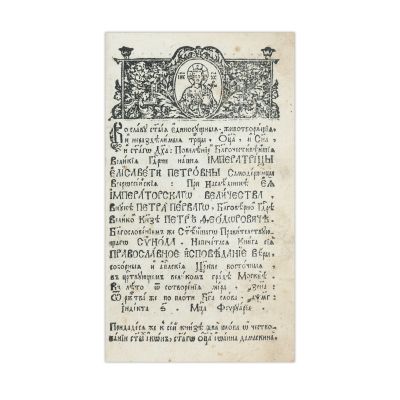 Во славу стыѧ єдиносущныѧ, животворѧщіѧ
и нераздѣлимыѧ трцы, Оц҃а и Сн҃а
и ст҃агѡ Дх҃а: Повелѣніемъ Благочестивѣйшіѧ
Великіѧ Гдр҃ни нашеѧ ІМПЕРАТРИЦЫ
ЕЛІСАВЕТЫ ПЕТРОВНЫ Самодержицы
Всерѡссійскіѧ: При Наслѣдникѣ ЕѦ
ІМПЕРАТОРСКАГѠ ВЕЛИЧЕСТВА,
Внукѣ ПЕТРА ПЕРВАГѠ, Благовѣрномъ Гдр҃ѣ
Великомъ Кн҃зѣ ПЕТРѢ ѲЕОДѠРОВИЧѢ.
Благословеніемъ же Ст҃ѣйшагѡ Правительствую
щагѡ СУНОДА. Напечатасѧ Книга сіѧ
ПРАВОСЛАВНОЕ ИСПОВѢДАНІЕ Вѣры
соборныѧ и ап҃лскіѧ Цр҃кве восточныѧ,
въ царствующемъ великомъ градѣ Москвѣ,
Въ лѣто ѿ сотворенія міра
ѿ рж҃тва же по плоти Бг҃а слова
Індікта Мц҃а Феvруаріа
Придадесѧ же къ сей книзѣ два слова ѡ чество
ваніи ст҃ыхъ ікѡнъ, ст҃агѡ Оц҃а іѡанна дамаскина.